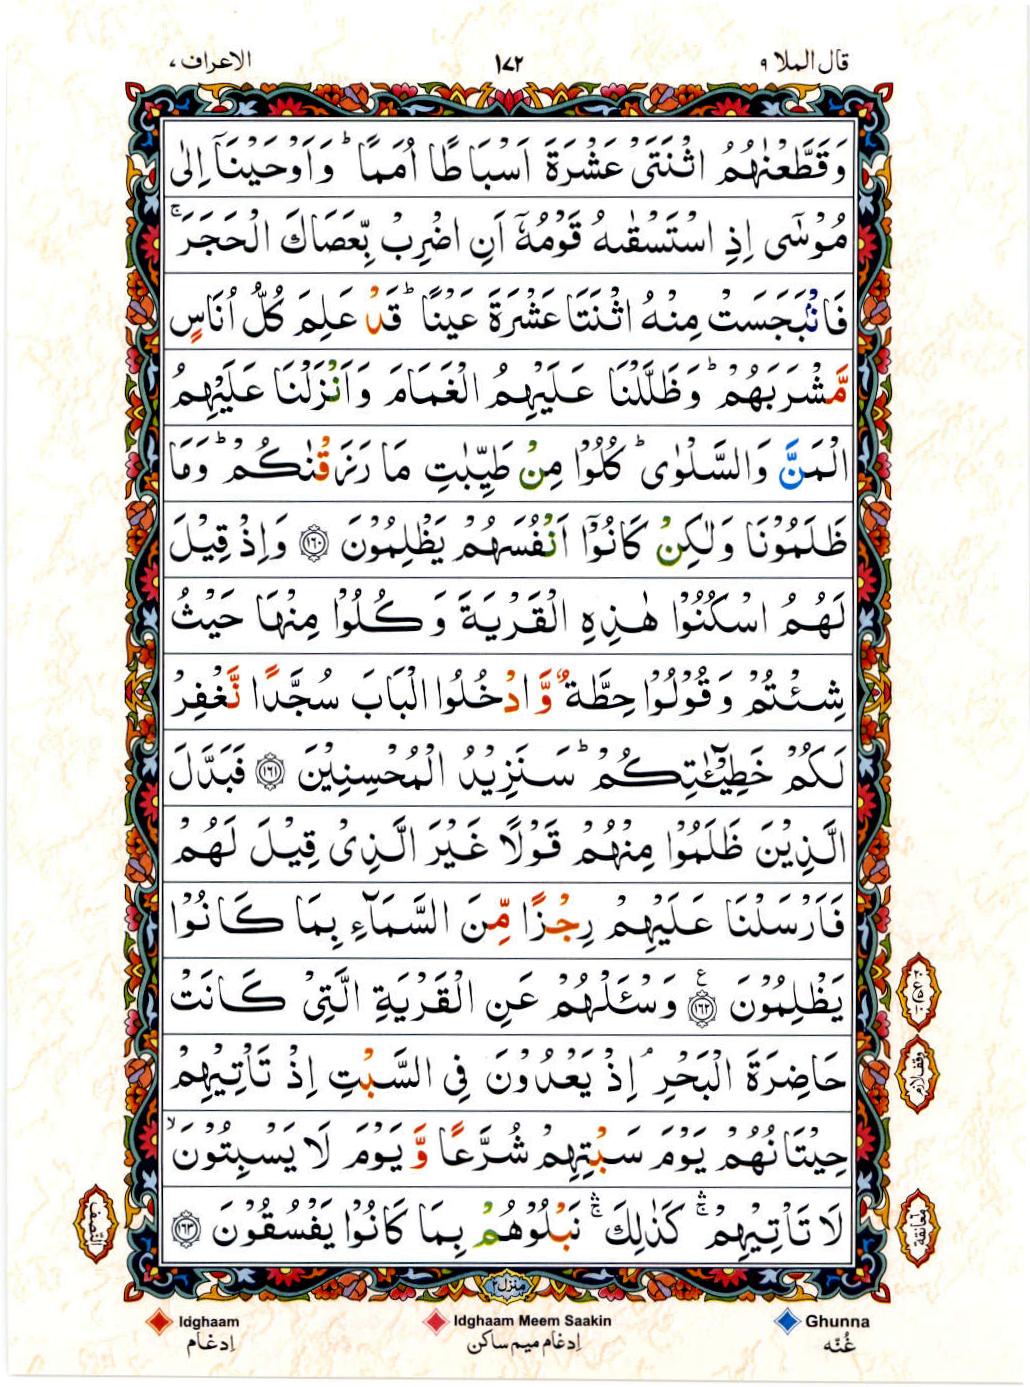 قال الملا ٩
١٧٢
الاعراف ٧
وَقَطَّعْنٰهُمُ اثْنَتَيْ عَشْرَةَ اَسْبَاطًا اُمَمًا ؕ وَاَوْحَيْنَاۤ اِلٰى
مُوْسٰۤى اِذِ اسْتَسْقٰىهُ قَوْمُهٗۤ اَنِ اضْرِبْ بِّعَصَاكَ الْحَجَرَ ۚ
فَانْۢبَجَسَتْ مِنْهُ اثْنَتَا عَشْرَةَ عَيْنًا ؕ قَدْ عَلِمَ كُلُّ اُنَاسٍ
مَّشْرَبَهُمْ ؕ وَظَلَّلْنَا عَلَيْهِمُ الْغَمَامَ وَاَنْزَلْنَا عَلَيْهِمُ
الْمَنَّ وَالسَّلْوٰى ؕ كُلُوْا مِنْ طَيِّبٰتِ مَا رَزَقْنٰكُمْ ؕ وَمَا
ظَلَمُوْنَا وَلٰكِنْ كَانُوْۤا اَنْفُسَهُمْ يَظْلِمُوْنَ ﴿١٦٠﴾ وَاِذْ قِيْلَ
لَهُمُ اسْكُنُوْا هٰذِهِ الْقَرْيَةَ وَكُلُوْا مِنْهَا حَيْثُ
شِئْتُمْ وَقُوْلُوْا حِطَّةٌ وَّادْخُلُوا الْبَابَ سُجَّدًا نَّغْفِرْ
لَكُمْ خَطِيْٓـٰٔتِكُمْ ؕ سَنَزِيْدُ الْمُحْسِنِيْنَ ﴿١٦١﴾ فَبَدَّلَ
الَّذِيْنَ ظَلَمُوْا مِنْهُمْ قَوْلًا غَيْرَ الَّذِىْ قِيْلَ لَهُمْ
فَاَرْسَلْنَا عَلَيْهِمْ رِجْزًا مِّنَ السَّمَآءِ بِمَا كَانُوْا
يَظْلِمُوْنَ ﴿١٦٢﴾ ع وَسْـَٔلْهُمْ عَنِ الْقَرْيَةِ الَّتِىْ كَانَتْ
حَاضِرَةَ الْبَحْرِ ۘ اِذْ يَعْدُوْنَ فِى السَّبْتِ اِذْ تَاْتِيْهِمْ
وقف لازم
حِيْتَانُهُمْ يَوْمَ سَبْتِهِمْ شُرَّعًا وَّيَوْمَ لَا يَسْبِتُوْنَ ۙ
لَا تَاْتِيْهِمْ ۛۚ كَذٰلِكَ ۛۚ نَبْلُوْهُمْ بِمَا كَانُوْا يَفْسُقُوْنَ ﴿١٦٣﴾
معانقة
النصف
منزل ٢
Idghaam
Idghaam Meem Saakin
Ghunna
اِدغام
اِدغام میم ساکن
غُنّه